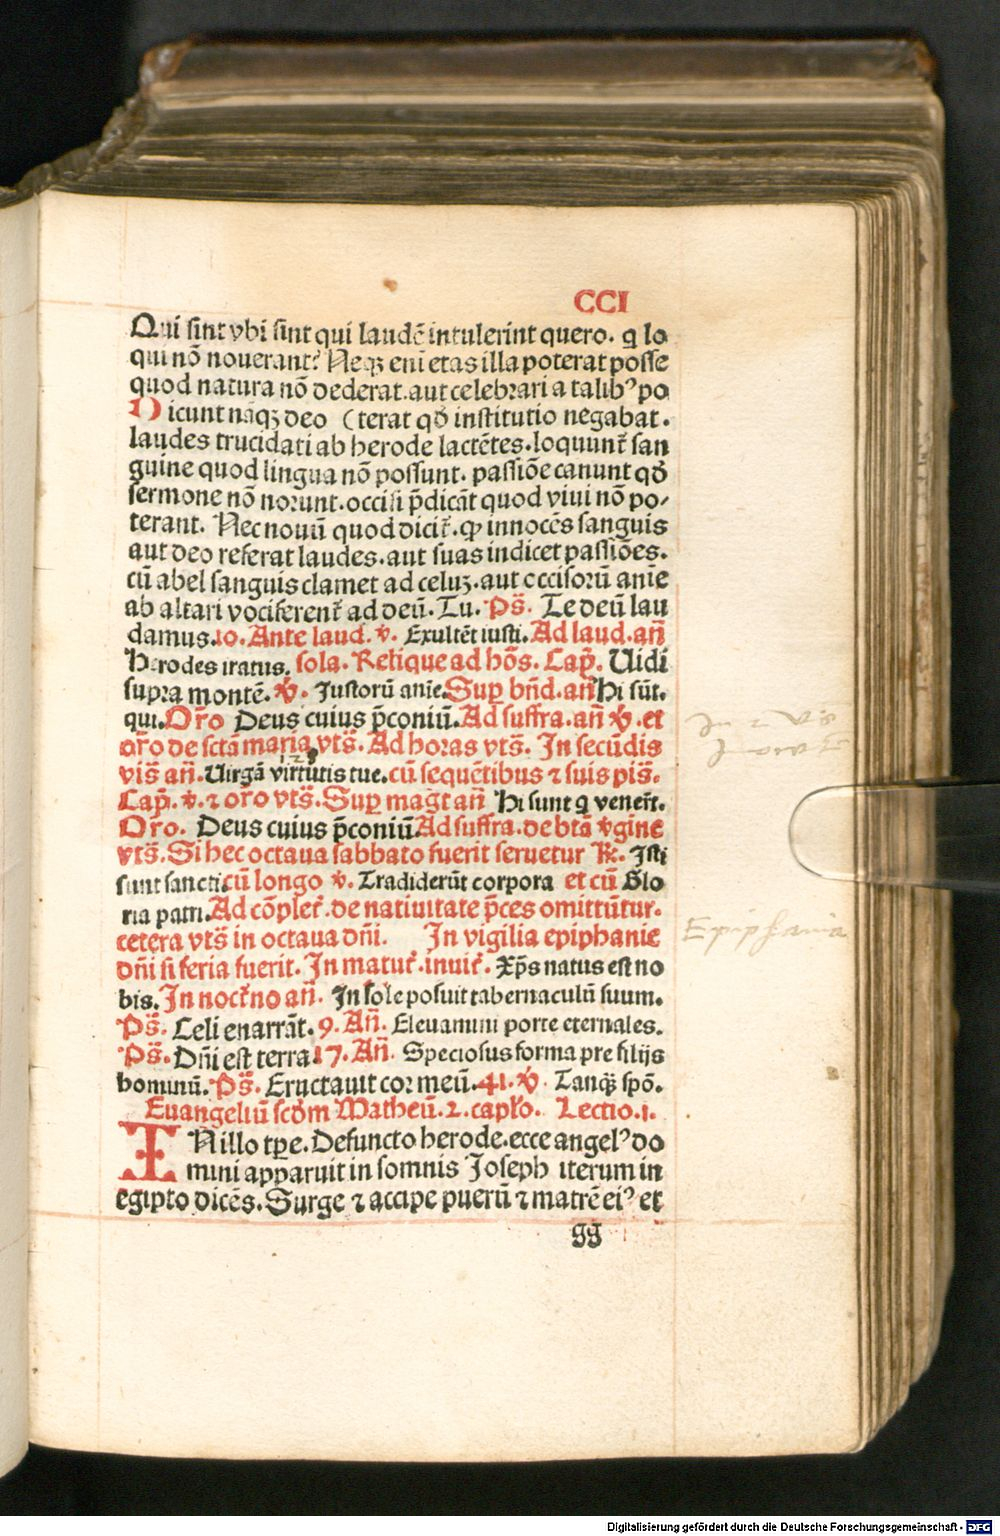 CCI
Qui sint vbi sint qui laudē intulerint quero. q̄ lo
qui nō nouerant? Neqꝫ eni etas illa poterat posse
quod natura nō dederat. aut celebrari a talibꝰ po
Dicunt nāqꝫ deo (terat qđ institutio negabat.
laudes trucidati ab herode lactētes. loquunt̄ san
guine quod lingua nō possunt. passiōe canunt qđ
sermone nō norunt. occisi p̄dicāt quod viui nō po-
terant. Nec nouū quod dicit̄. ꝙ innocēs sanguis
aut deo referat laudes. aut suas indicet passiōes.
cū abel sanguis clamet ad celuꝫ. aut occisorū anie
ab altari vociferent̄ ad deū. Tu. Ps̄. Te deū lau
damus. 10. Ante laud. v̄. Exultēt iusti. Ad laud. an̄
Herodes iratus. sola. Relique ad hōs. Cap̄. Uidi
supra montē. v̄. Justorū anie. Sup̄ bn̄d. an̄ Hi sūt.
qui. Or̄o Deus cuius p̄coniū. Ad suffra. an̄ v̄. et
or̄o de sctā maria vts̄. Ad horas vts̄. In secūdis
vis̄ an̄. Uirgā virtutis tue. cū sequētibus ⁊ suis pis̄.
Cap̄. v̄. ⁊ oro vts̄. Sup̄ magt̄ an̄ Hi sunt q̄ venert̄.
Oro. Deus cuius p̄coniū Ad suffra. de btā v̄gine
vts̄. Si hec octaua sabbato fuerit seruetur R̄. Isti
sunt sancti. cū longo v̄. Tradiderūt corpora et cū Glo
ria patri. Ad cōplet̄. de natiuitate p̄ces omittūtur.
cetera vts̄ in octaua dn̄i. In vigilia epiphanie
dn̄i si feria fuerit. In matut̄. inuit̄. Xp̄s natus est no
bis. In noct̄no an̄. In sole posuit tabernaculū suum.
Ps̄. Celi enarrāt. 9. An̄. Eleuamini porte eternales.
Ps̄. Dn̄i est terra. 17. An̄. Speciosus forma pre filijs
hominū. Ps̄. Eructauit cor meū. 41. v̄. Tanqꝫ spō.
Euangeliū scđm Matheū. 2. caplo. Lectio. i.
IN illo tpe. Defuncto herode. ecce angelꝰ do
mini apparuit in somnis Joseph iterum in
egipto dicēs. Surge ⁊ accipe puerū ⁊ matrē eiꝰ et
gg
In 2 vis
Epiphania
Digitalisierung gefördert durch die Deutsche Forschungsgemeinschaft - DFG